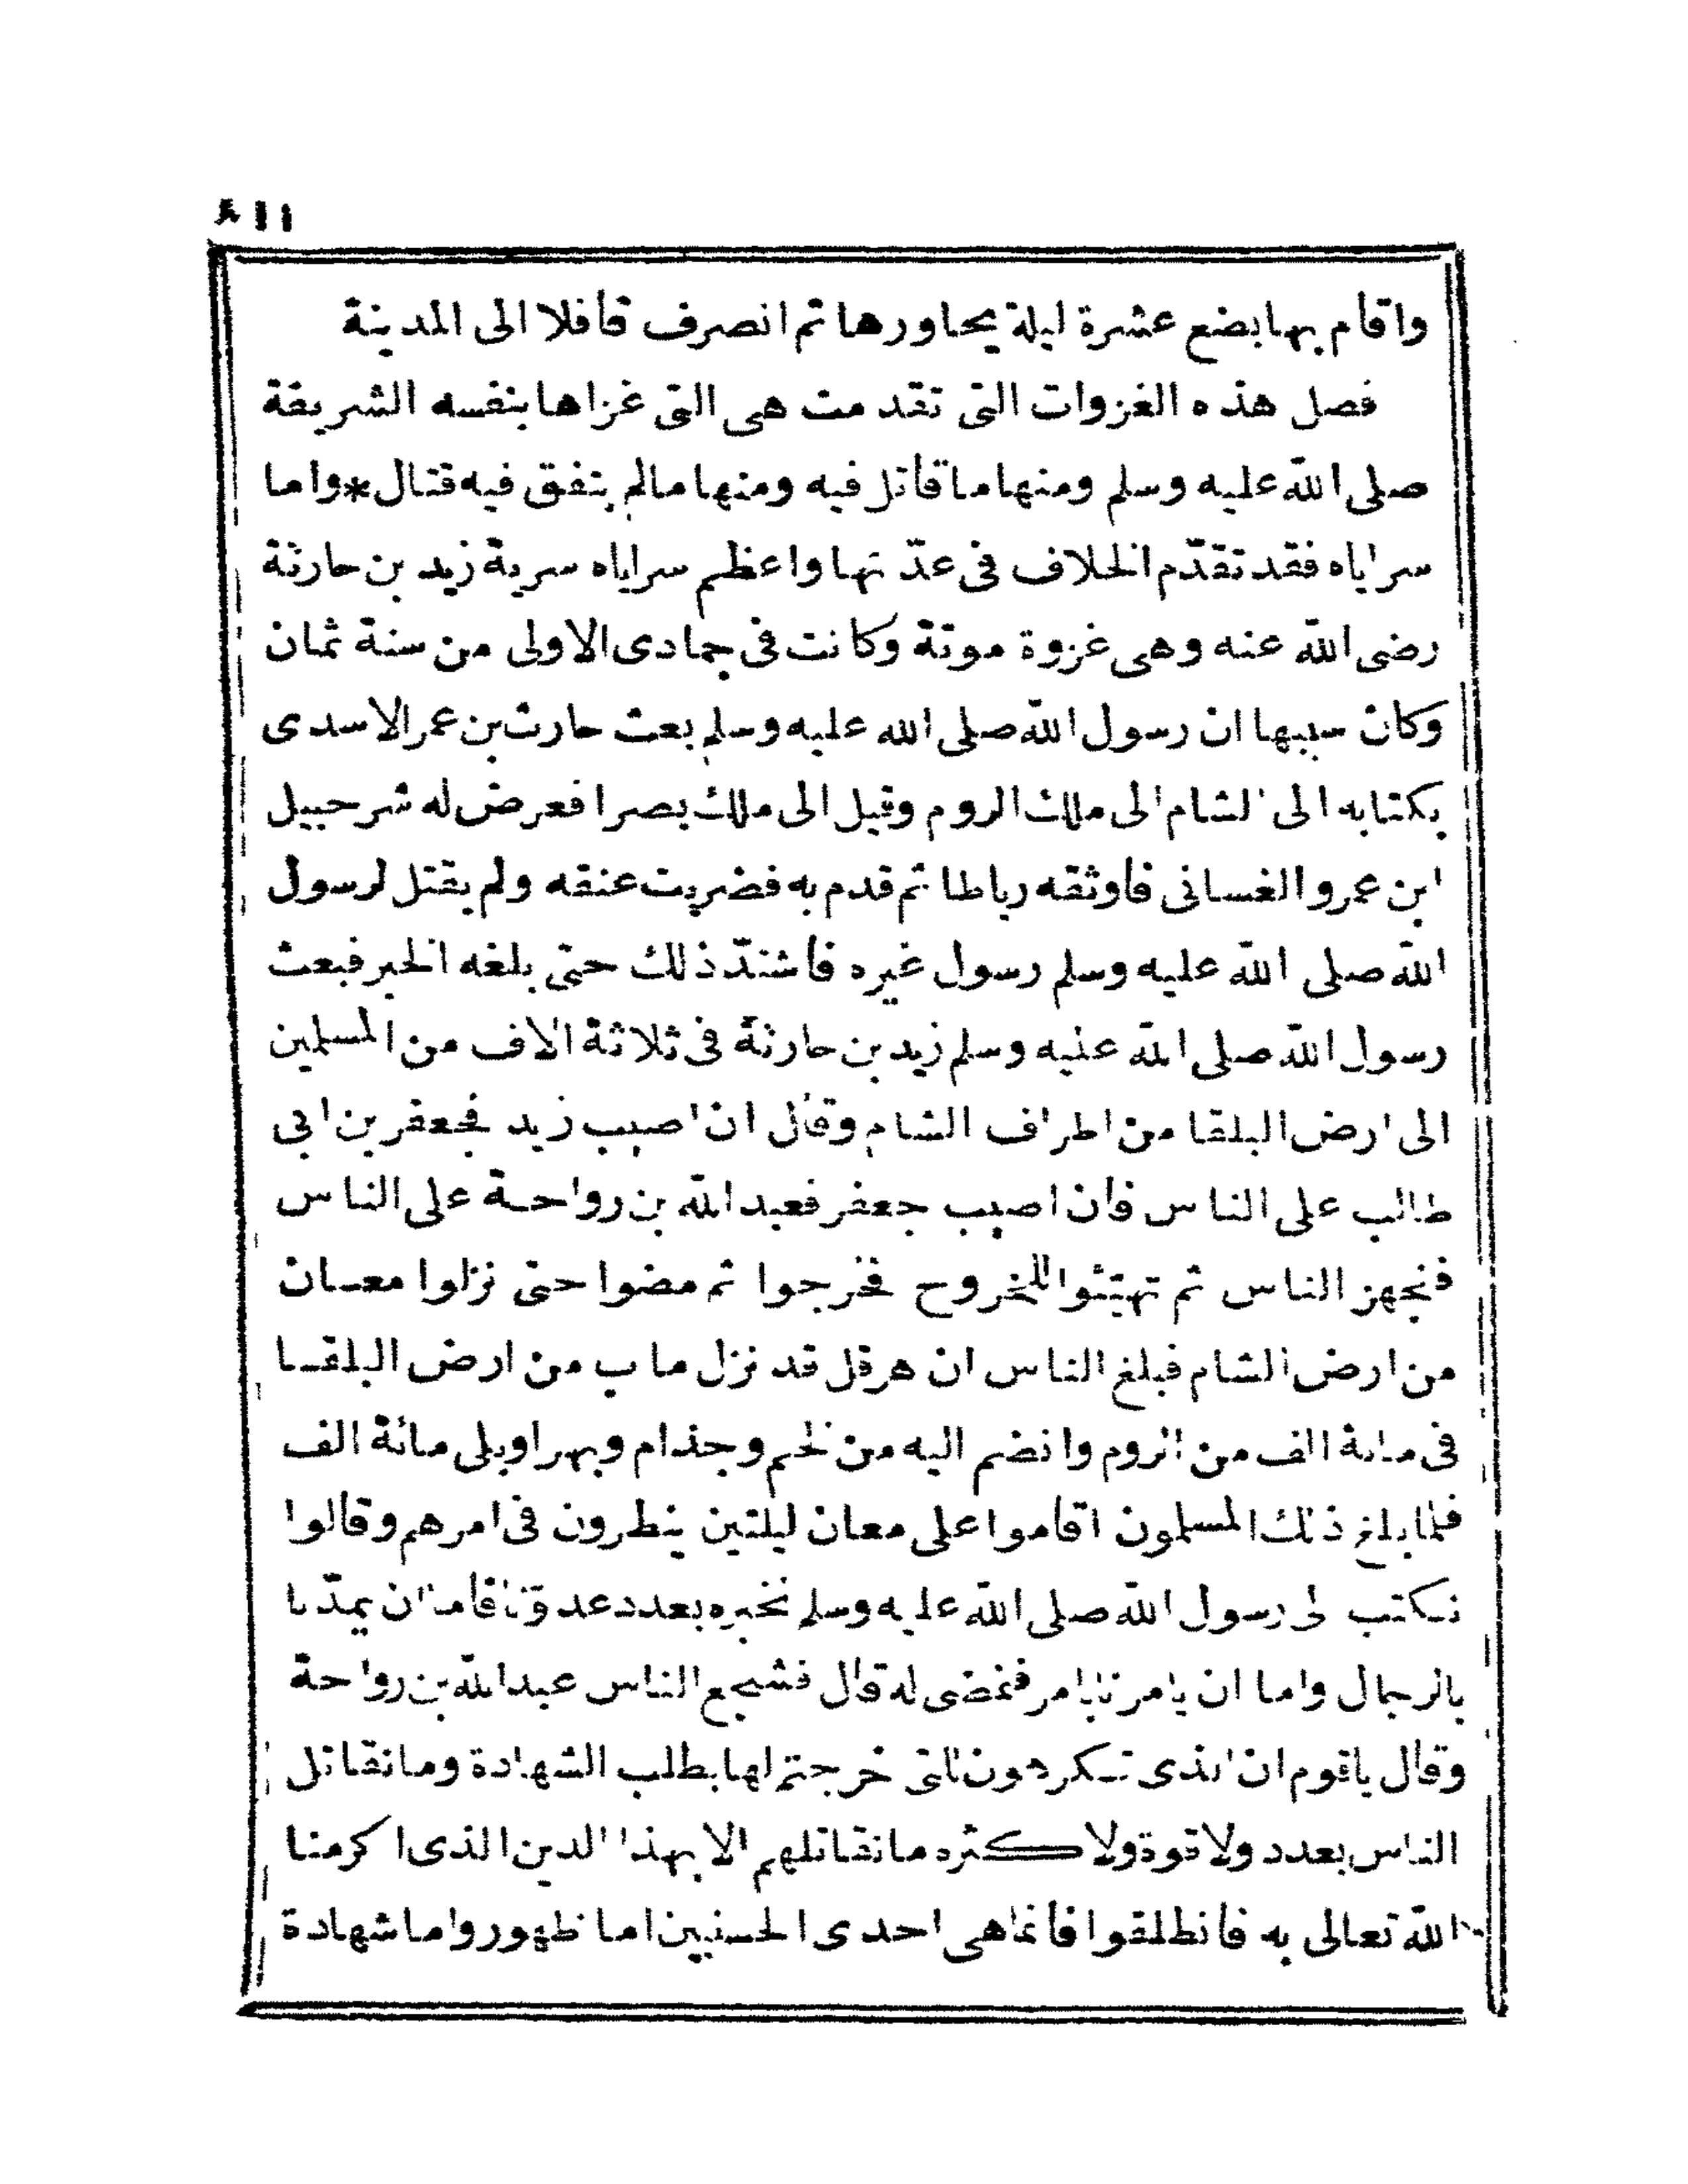 واقام بها بضع عشرة ليلة يحاورها ثم انصرف قافلا الى المدينة
فصل هذه الغزوات التى تقدمت هى التى غزاها بنفسه الشريفة
صلى الله عليه وسلم ومنها ما قاتل فيه ومنها مالم يتفق فيه قتال * واما
سراياه فقد تقدّم الخلاف فى عدّتها واعظم سراياه سرية زيد بن حارثة
رضى الله عنه وهى غزوة موتة وكانت فى جمادى الاولى من سنة ثمان
وكان سببها ان رسول الله صلى الله عليه وسلم بعث حارث بن عمر الاسدى
بكتابه الى الشام الى ملك الروم وقيل الى ملك بصرا فعرض له شرحبيل
ابن عمرو الغسانى فاوثقه رباطا ثم قدم به فضربت عنقه ولم يقتل لرسول
الله صلى الله عليه وسلم رسول غيره فاشتدّ ذلك حتى بلغه الخبر فبعث
رسول الله صلى الله عليه وسلم زيد بن حارثة فى ثلاثة الاف من المسلمين
الى ارض البلقا من اطراف الشام وقال ان اصيب زيد فجعفر بن ابى
طالب على الناس فان اصيب جعفر فعبد الله بن رواحة على الناس
فتجهز الناس ثم تهيئوا للخروج فخرجوا ثم مضوا حتى نزلوا معان
من ارض الشام فبلغ الناس ان هرقل قد نزل ماب من ارض البلقا
فى مائة الف من الروم وانضم اليه من لخم وجذام وبهرا وبلى مائة الف
فلما بلغ ذلك المسلمون اقاموا على معان ليلتين ينظرون فى امرهم وقالوا
نكتب الى رسول الله صلى الله عليه وسلم نخبره بعدد عدوّنا فاما ان يمدّنا
بالرجال واما ان يامرنا بامر فنمضى له قال فشجع الناس عبد الله بن رواحة
وقال ياقوم ان الذى تكرهون للتى خرجتم لها بطلب الشهادة وما نقاتل
الناس بعدد ولا قوة ولا كثره ما نقاتلهم الا بهذا الدين الذى اكرمنا
الله تعالى به فانطلقوا فانما هى احدى الحسنيين اما ظهور واما شهادة